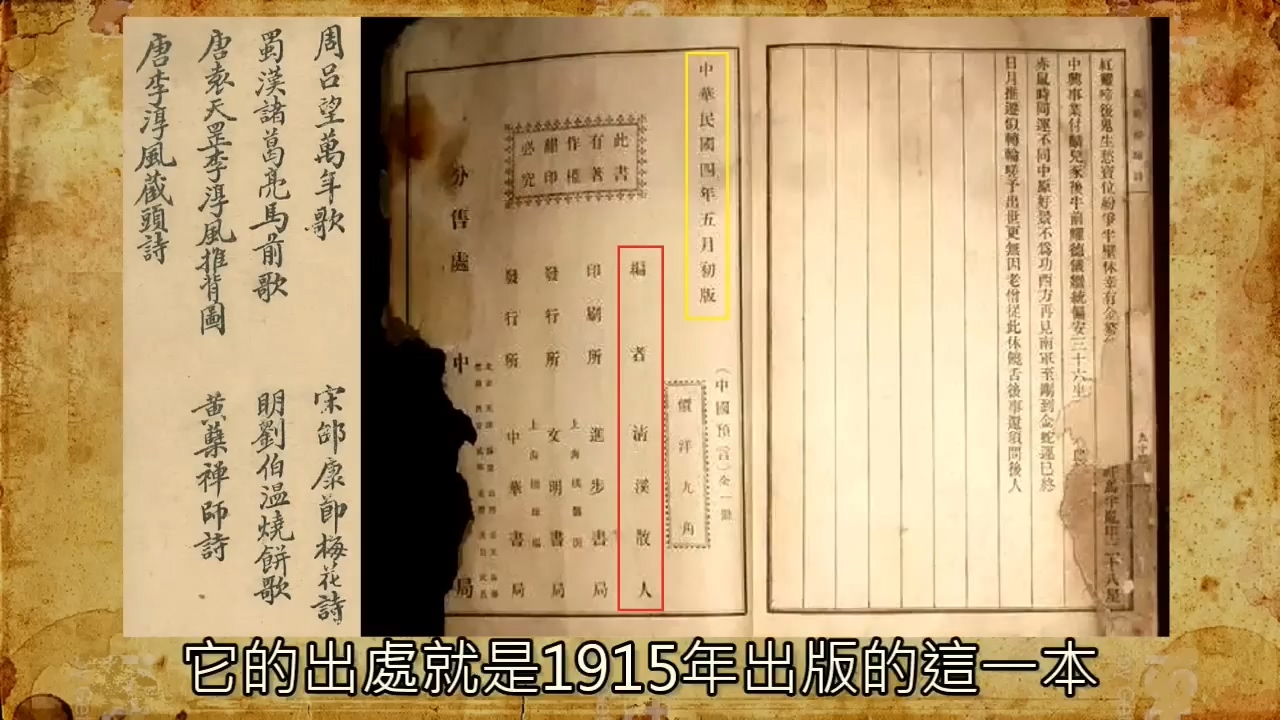 周呂望萬年歌
蜀漢諸葛亮馬前歌
唐袁天罡李淳風推背圖
唐李淳風藏頭詩
宋邵康節梅花詩
明劉伯溫燒餅歌
黃蘗禪師詩
紅雞啼後鬼生愁寶位紛爭半壁休幸有金鰲
中興事業付麟兒豕後牛前耀德儀繼統偏安三十六坐
赤鼠時同運不同中原好景不為功西方再見南軍至剛到金蛇運已終
日月推遷似轉輪嗟予出世更無因老僧從此休饒舌後事還須問後人
中華民國四年五月初版
(中國預言)全一冊
價洋九角
此書
有著
作權
翻印
必究
編者 清溪散人
印刷所 進步書局
發行所 上海 文明書局
發行所 上海 中華書局
分售處 中 局
它的出處就是1915年出版的這一本